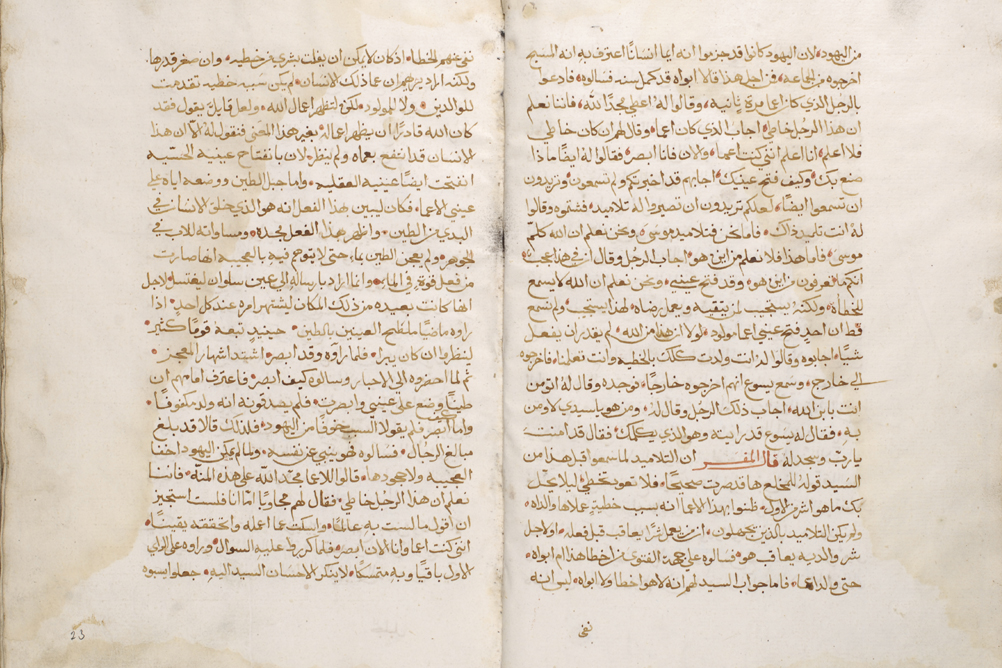 من اليهود لان اليهود كانوا قد جزموا انه ايما انسانًا اعترف به انه المسيح
اخرجوه من الجماعه فمن اجل هذا قالا ابواه قد كمل سنه فسالوه فادعوا
بالرجل الذي كان اعما مرة ثانيه وقالوا له اعطي مجدًا لله فاننا نعلم
ان هذا الرجل خاطي اجاب الذي كان اعما وقال لهم ان كان خاطي
فلا اعلم انا اعلم انني كنت اعما والان فانا ابصر فقالوا له ايضًا ماذا
صنع بك وكيف فتح عينيك اجابهم قد اخبرتكم ولم تسمعون وتريدون
ان تسمعوا ايضًا لعلكم تريدون ان تصيروا له تلاميد فشتموه وقالوا
له انت تلميد ذاك فاما نحن فتلاميد موسى ونحن نعلم ان الله كلم
موسى فاما هذا فلا نعلم من اين هو اجاب الرجل وقال ان في هذا عجب
انكم ما تعرفون من اين هو وقد فتح عينيه ونحن نعلم ان الله لا يسمع
للخطاة ولكنه يستجيب لمن يتقيه ويعمل رضاه لهذا يستجيب ولم نسمع
قط ان احدٍ فتح عيني اعما مولود لولا ان هذا من الله لم يقدر ان يفعل
شيًا اجابوه وقالوا له انت ولدت كلك بالخطيه وانت تعلمنا فاخرجوه
الي خارج وسمع يسوع انهم اخرجوه خارجًا فوجده وقال له اتومن
انت بابن الله اجاب ذلك الرجل وقال له ومن هو ياسيدي لاومن
به فقال له يسوع قد رايته وهو الذي يكلمك فقال قد امنت
يارب وسجد له قال المفسر ان التلاميد لما سمعوا قبل هذا من
السيد قوله للمخلع ها قد صرت صحيحًا فلا تعود تخطي ليلا يحل
بك ما هو اشر من الاول ظنوا بهذا الاعما انه بسبب خطيه عملاها والداه
ولم يكن التلاميد بالذين يجهلون ان من يفعل شرًا يعاقب قبل فعله ولا من اجل
شر والديه يعاقب هو فسالوه على جهة الفتوى من اخطا هذا ام ابواه
حتى ولد اعما فاما جواب السيد لهم انه لا هو اخطا ولا ابواه ليس انه
نفي
نفي عنهم الخطا اذ كان لا يمكن ان يفلت بشري من خطيه وان صغر قدرها
ولكنه اراد يريهم ان عما ذلك الانسان لم يكن سببه خطيه تقدمت
للوالدين ولا للمولود لكن لتظهر اعمال الله ولعل قايل يقول فقد
كان الله قادرًا ان يظهر اعماله بغير هذا المعنى فنقول له الا ان هذا
الانسان قد انتفع بعماه ولم ينظر لان بانفتاح عينيه الحسيه
انفتحت ايضًا عينيه العقليه واما جبل الطين ووضعه اياه على
عيني الاعما فكان ليبين بهذا الفعل انه هو الذي خلق الانسان في
البدي من الطين واظهر بهذا الفعل مجده ومساواته للاب في
الجوهر ولم يعجن الطين بماء حتى لا يتوهم فيه بالعجيبه انها صارت
من فعل قوة في الماء وانما اراد بارساله الى عين سلوان ليغتسل لاجل
انها كانت بعيده من ذلك المكان ليشتهر امره عند كل احدٍ اذا
راوه ماشيًا ملطخ العينين بالطين حينيد تبعه قومًا كثير
لينظروا ان كان يبرا فلما راوه وقد ابصر اشتد اشهار المعجز
ثم لما احضروه الى الاحبار وسالوه كيف ابصر فاعترف امامهم ان
طينًا وضع على عيني وابصرت فلم يصدقونه انه ولد مكفوفًا
واما ابواه فلم يقولا المسيح خوفًا من اليهود فلذلك قالا قد بلغ
مبالغ الرجال فسالوه فهو ينبي عن نفسه ولما لم يمكن اليهود اخفا
العجيبه ولا جحودها قالوا للاعما مجد الله على هذه المنه فاننا
نعلم ان هذا الرجل خاطي فقال لهم مجاوبًا اما انا فلست استجيز
ان اقول ما لست به عالمًا واسكت عما اعمله واتحققه يقينًا
انني كنت اعما وانا الان ابصر فلما كرروا عليه السوال وراوه على الراي
الاول باقيًا وبه متمسكًا لا ينكر الاحسان السيد اليه جعلوا يسبوه
23